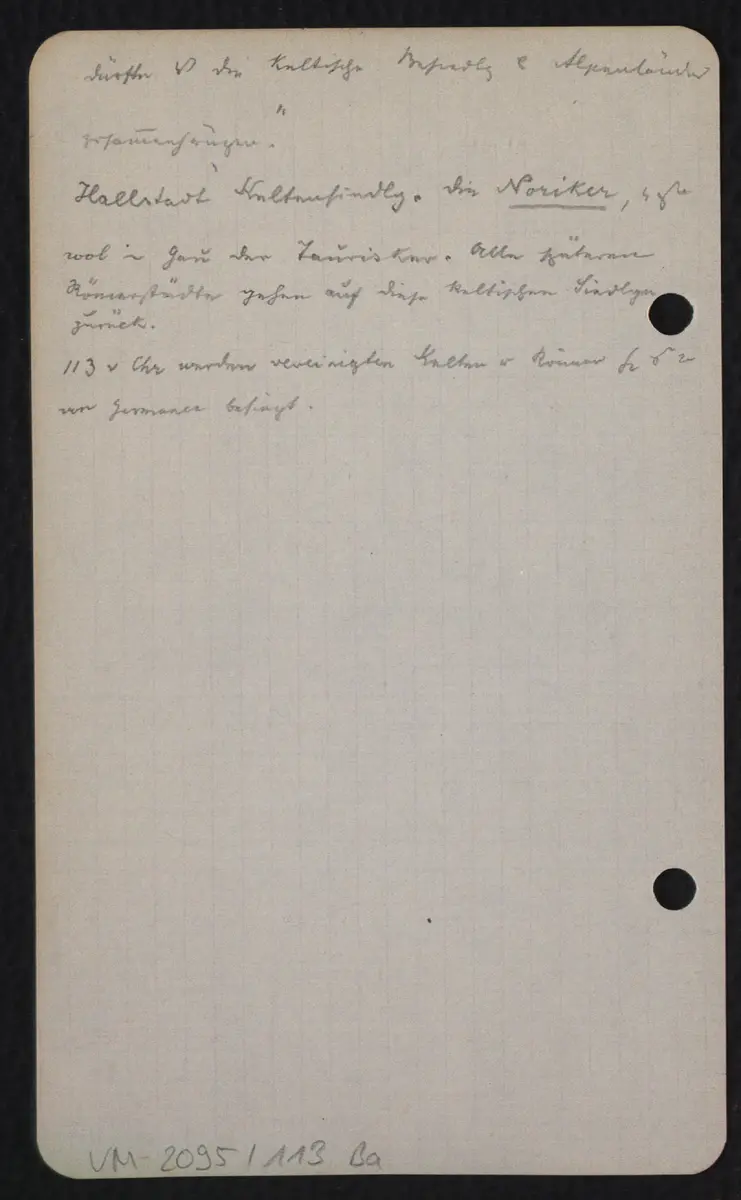 dürfte die keltische Besiedlg Alpenländer
zusammenhängen.
Hallstadt Keltensiedlg. die Noriker,
wol in Gau der Taurisker. Alle späteren
Römerstädte gehen auf diese keltischen Siedlgn
zurück.
113 v Chr werden vereinigten Kelten u Römer
von Germanen besiegt.
VM-2095/113 Ba